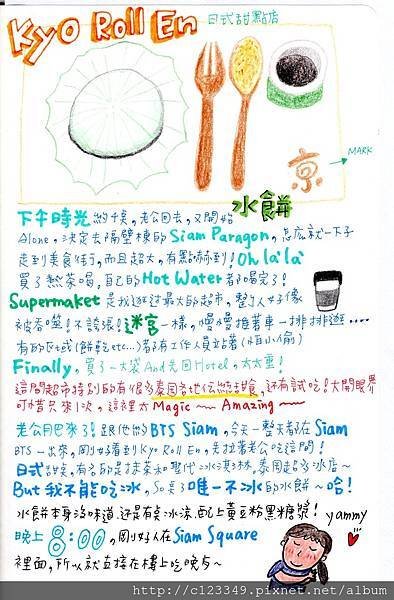 Kyo Roll En 日式甜點店
京
MARK
水餅
下午時光 老公回去,又開始
Alone,決定去隔壁棟的 Siam Paragon,怎麼就一下子
走到美食街,而且超大,有點嚇到! Oh la' la'
買了熱茶喝,自己的 Hot Water 都喝完了!
Supermaket 是我逛過最大的超市,整個人好像
被吞噬!不誇張!迷宮一樣,慢慢推著車一排排逛....
有的區域(餅乾etc...)都有工作人員站著(怕小偷)
Finally,買了一大袋And先回Hotel,太太重!
這間超市特別的有很多泰國各地傳統甜食,還有試吃!大開眼界
可惜只來1次,這裡太 Magic ~ Amazing ~
老公月巴來了!跟他約 BTS Siam,今天一整天都在 Siam
BTS一出來,剛好看到 Kyo Roll En,先拉著老公吃這間!
日式甜點,有名的是抹茶和聖代冰淇淋,泰國超多冰店~
But 我不能吃冰,So 只了唯一不冰的水餅~哈!
水餅本身沒味道,還是有臭冰涼,配上黃豆粉黑糖漿! yammy
晚上 8:00,剛好人在 Siam Square
裡面,所以就直接在樓上吃晚
http://c123349.pixnet.net/album